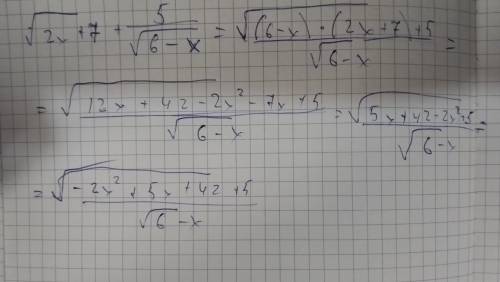 √2x+7 + 5/√6-x = √(6-x)·(2x+7)+5/√6-x =
= √12x+42-2x²-7x+5/√6-x = √5x+42-2x²+5/√6-x =
= √-2x²+5x+42+5/√6-x